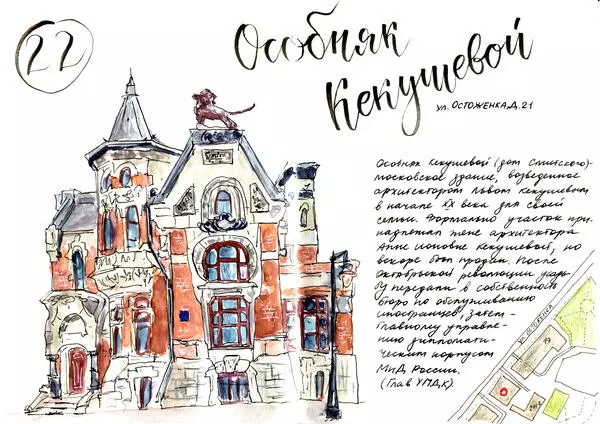 22
Особняк
Кекушевой
ул. Остоженка, д. 21
Особняк Кекушевой (дом Смитского)-
московское здание, возведенное
архитектором Львом Кекушевым
в начале XX века для своей
семьи. Формально участок при-
надлежал жене архитектора
Анне Ионовне Кекушевой, но
вскоре был продан. После
Октябрьской революции усадь-
бу передали в собственность
бюро по обслуживанию
иностранцев, затем-
Главному управле-
нию дипломати-
ческим корпусом
МИД России.
(Глав УПДК)
ул. Остоженка
19